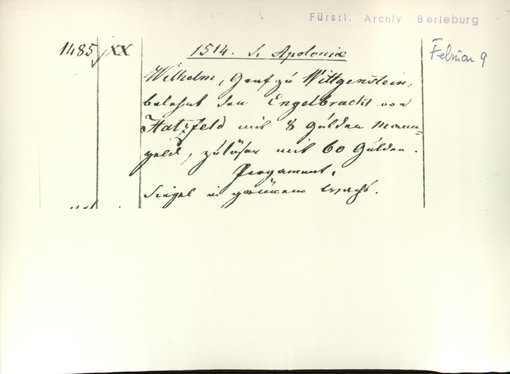 Fürstl. Archiv Berleburg
1485 XX 1514. S. Apoloniæ Februar 9
Wilhelm, Graf zu Wittgenstein,
belehnt den Engelbracht von
Hatzfeld mit 8 Gulden Mann-
geld, zulösen mit 60 Gulden.
Pergament.
Siegel in grünem Wachs.